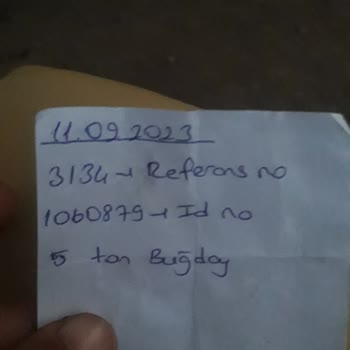 11.09.2023
3134→ Referans no
1060879→ Id no
5 ton Buğday